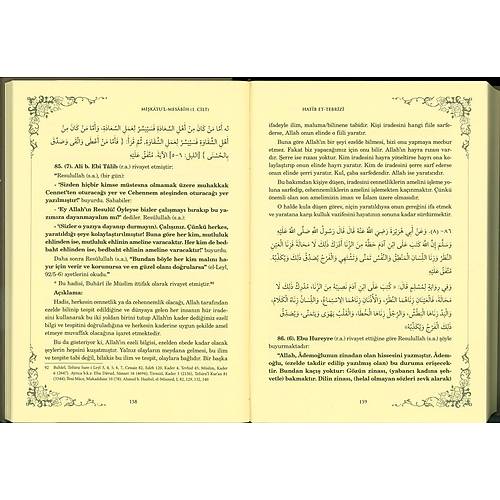 MİŞKÂTU'L-MESÂBÎH (1. CİLT)
لَهُ أَمَّا مَنْ كَانَ مِنْ أَهْلِ السَّعَادَةِ فَسَيُيَسَّرُ لِعَمَلِ السَّعَادَةِ، وَأَمَّا مَنْ كَانَ مِنْ
أَهْلِ الشَّقَاوَةِ فَسَيُيَسَّرُ لِعَمَلِ الشَّقَاوَةِ. ثُمَّ قَرَأَ: ﴿فَأَمَّا مَنْ أَعْطَى وَاتَّقَى وَصَدَّقَ
بِالْحُسْنَى﴾ [الليل: ٥-٦] الْآيَةَ. مُتَّفَقٌ عَلَيْهِ
85. (7). Ali b. Ebi Tâlib (r.a.) rivayet etmiştir:
"Resulullah (s.a.), (bir gün):
- "Sizden hiçbir kimse müstesna olmamak üzere muhakkak
Cennet'ten oturacağı yer ve Cehennem ateşinden oturacağı yer
yazılmıştır!" buyurdu. Sahabiler:
- "Ey Allah'ın Resulü! Öyleyse bizler çalışmayı bırakıp bu ya-
zımıza dayanmayalım mı" dediler. Resûlullah (s.a.):
- "(Sizler o yazıya dayanıp durmayın). Çalışın. Çünkü herkes,
yaratıldığı şeye kolaylaştırılmıştır! Buna göre her kim, mutluluk
ehlinden ise, mutluluk ehlinin ameline varacaktır. Her kim de bed-
baht ehlinden ise, bedbaht ehlinin ameline varacaktır!" buyurdu.
Daha sonra Resûlullah (s.a.), "Bundan böyle her kim malını ha-
yır için verir ve korunursa ve en güzel olanı doğrularsa" (el-Leyl,
92/5-6) ayetlerini okudu."
* Bu hadisi, Buhârî ile Müslim ittifak olarak rivayet etmiştir.⁹²
Açıklama:
Hadis, herkesin cennetlik ya da cehennemlik olacağı, Allah tarafından
ezelde bilinip tespit edildiğine ve dünyaya gelen her insanın hür irade-
sini kullanarak bu iki yoldan birini tutup Allah'ın kendine çizdiği ezelî
bilgi ve tespitini doğruladığına ve herkesin kaderine uygun şekilde amel
etmeye muvaffak olacağına işaret etmektedir.
Bu da gösteriyor ki, Allah'ın ezeli bilgisi, ezelden ebede kadar olacak
şeylerin hepsini kuşatmıştır. Yalnız olayların meydana gelmesi, bu ilm
ve tespite tabi değil, bilakis bu ilim ve tespit, olaylara bağlıdır. Bir başka
138
HATÎB ET-TEBRÎZÎ
ifadeyle ilim, maluma/bilinene tabidir. Kişi iradesini hangi fiile sarfe-
derse, Allah onun elinde o fiili yaratır.
Buna göre Allah'ın bir şeyi ezelde bilmesi, bizi onu yapmaya mecbur
etmez. Fakat biz yapacağımız için onu bilir. Allah'ın hayra rızası var-
dır. Şerre ise rızası yoktur. Kim iradesini hayra yöneltirse hayrı ona ko-
laylaştırarak onun elinde hayrı yaratır. Kim iradesini şerre yöneltirse onun
elinde şerri yaratır. Kul, çaba sarfedendir. Allah ise yaratandır.
Bu bakımdan kişiye düşen, iradesini cennetliklerin amelini işleme yo-
luna sarfetmektir. Ancak ameline de güvenmemektir. Çünkü
önemli olan son amelimizin imanı ve İslam üzere olmasıdır.
O halde kula düşen görev, niçin yaratıldıysa onun gereğini ifa etmek
ve yaratana karşı kulluk vazifesini hayatının sonuna kadar sürdürmektir.
٨٦- (٨). وَعَنْ أَبِي هُرَيْرَةَ رَضِيَ اللَّهُ عَنْهُ قَالَ: قَالَ رَسُولُ اللَّهِ صَلَّى اللَّهُ عَلَيْهِ
وَسَلَّمَ إِنَّ اللَّهَ كَتَبَ عَلَى ابْنِ آدَمَ حَظَّهُ مِنَ الزِّنَا أَدْرَكَ ذَلِكَ لَا مَحَالَةَ فَزِنَا الْعَيْنِ
النَّظَرُ وَزِنَا اللِّسَانِ الْمَنْطِقُ وَالنَّفْسُ تَمَنَّى وَتَشْتَهِي وَالْفَرْجُ يُصَدِّقُ ذَلِكَ وَيُكَذِّبُهُ.
مُتَّفَقٌ عَلَيْهِ
وَفِي رِوَايَةٍ لِمُسْلِمٍ قَالَ: كُتِبَ عَلَى ابْنِ آدَمَ نَصِيبُهُ مِنَ الزِّنَا، مُدْرِكٌ ذَلِكَ لَا
مَحَالَةَ، فَالْعَيْنَانِ زِنَاهُمَا النَّظَرُ، وَالْأُذُنَانِ زِنَاهُمَا الِاسْتِمَاعُ، وَاللِّسَانُ زِنَاهُ الْكَلَامُ،
وَالْيَدُ زِنَاهَا الْبَطْشُ، وَالرِّجْلُ زِنَاهَا الْخُطَا، وَالْقَلْبُ يَهْوَى وَيَتَمَنَّى، وَيُصَدِّقُ
ذَلِكَ الْفَرْجُ وَيُكَذِّبُهُ.
86. (6). Ebu Hureyre (r.a.) rivayet ettiğine göre Resulullah (s.a.) şöyle
buyurmaktadır:
"Allah, Âdemoğlunun zinadan olan hissesini yazmıştır. Âdemo-
ğlu, (ezelde takdir edilip yazılmış olan) bu duruma erişecek-
tir. Bundan kaçış yoktur: Gözün zinası, (yabancı kadına şeh-
vetle) bakmaktır. Dilin zinası, (helal olmayan sözleri zevk alarak)
139